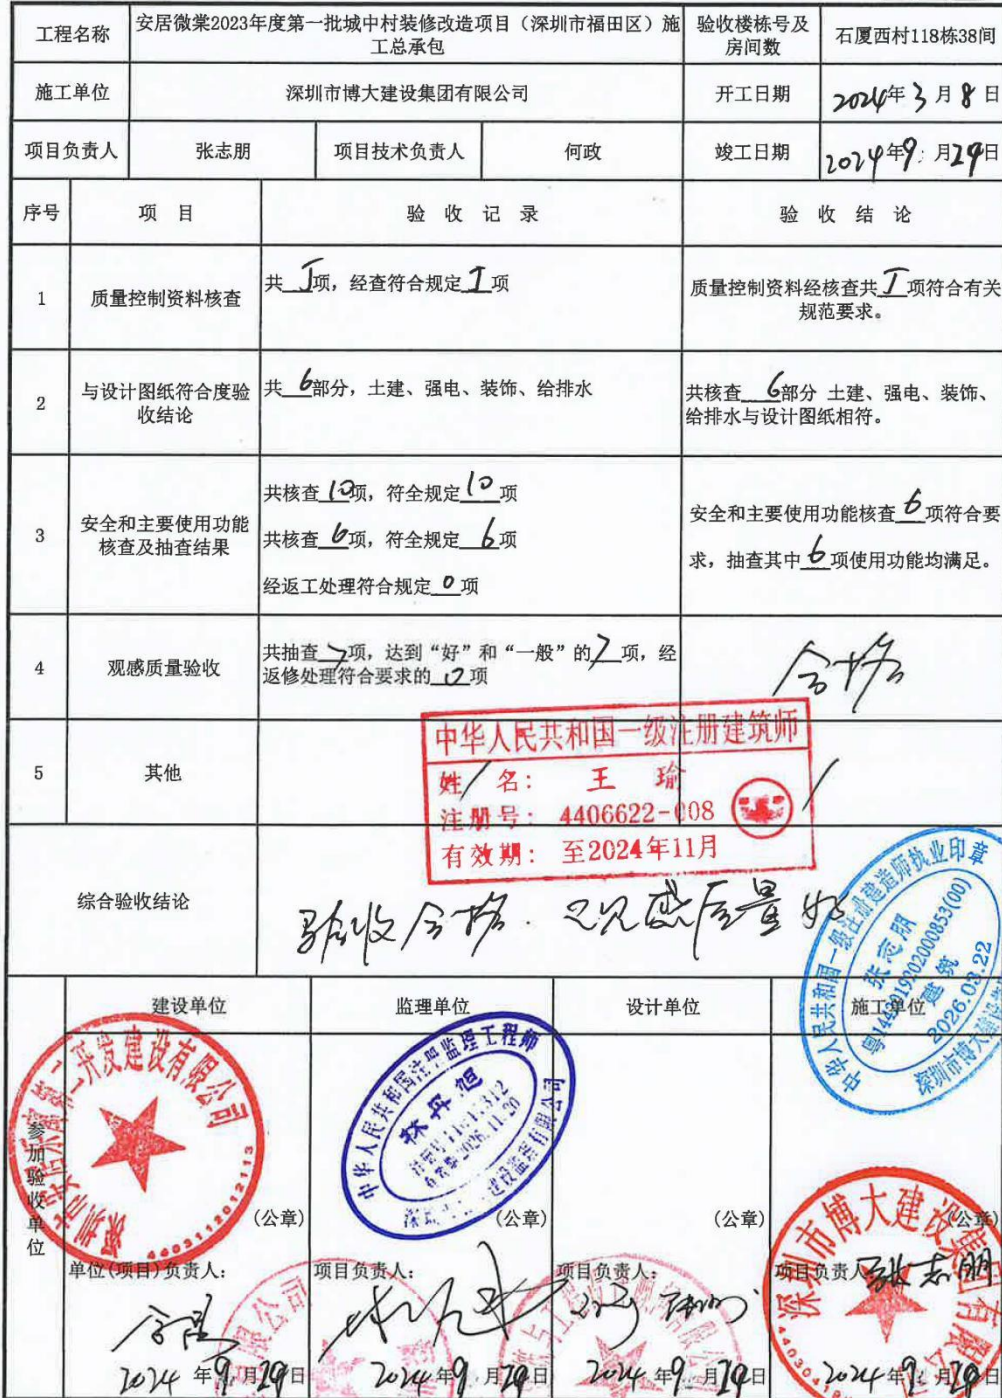 工程名称
安居微棠2023年度第一批城中村装修改造项目（深圳市福田区）施
工总承包
验收楼栋号及
房间数
石厦西村118栋38间
施工单位
深圳市博大建设集团有限公司
开工日期
2024年3月8日
项目负责人
张志朋
项目技术负责人
何政
竣工日期
2024年9月29日
序号
项 目
验 收 记 录
验 收 结 论
1
质量控制资料核查
共 项，经查符合规定 项
质量控制资料经核查共 项符合有关
规范要求。
2
与设计图纸符合度验
收结论
共6部分，土建、强电、装饰、给排水
共核查6部分 土建、强电、装饰、
给排水与设计图纸相符。
3
安全和主要使用功能
核查及抽查结果
共核查10项，符全规定10项
共核查6项，符全规定6项
经返工处理符合规定0项
安全和主要使用功能核查6项符合要
求，抽查其中6项使用功能均满足。
4
观感质量验收
共抽查7项，达到“好”和“一般”的7项，经
返修处理符合要求的0项
合格
5
其他
/
/
中华人民共和国一级注册建筑师
姓 名： 王 瑜
注册号： 4406622-008
有效期： 至2024年11月
综合验收结论
验收合格. 观感质量好
中华人民共和国一级注册建造师执业印章
张志朋
粤1442019202000853(00)
建筑
2026.03.22
深圳市博大建设
参加验收单位
建设单位
监理单位
设计单位
施工单位
开发建设有限公司
4403112012113
中华人民共和国注册监理工程师
林丹旭
2026.11.20
建设监理有限公司
深圳市博大建设集团有限公
(公章)
(公章)
(公章)
(公章)
单位(项目)负责人：
项目负责人：
项目负责人：
项目负责人
张志朋
限公司
有限公
2024年9月29日
2024年9月29日
2024年9月29日
2024年9月29日